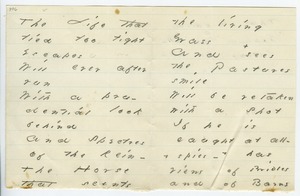 The Life that
tied too tight
Escapes
Will ever after
run
With a pru-
dential look
behind
And spectres
of the Rein -
The Horse
that scents
the living
Grass
And sees
the Pastures
smile
Will be retaken
with a shot
If he is
caught at all -
+ spies - + has,
of Bridles
and of Barns